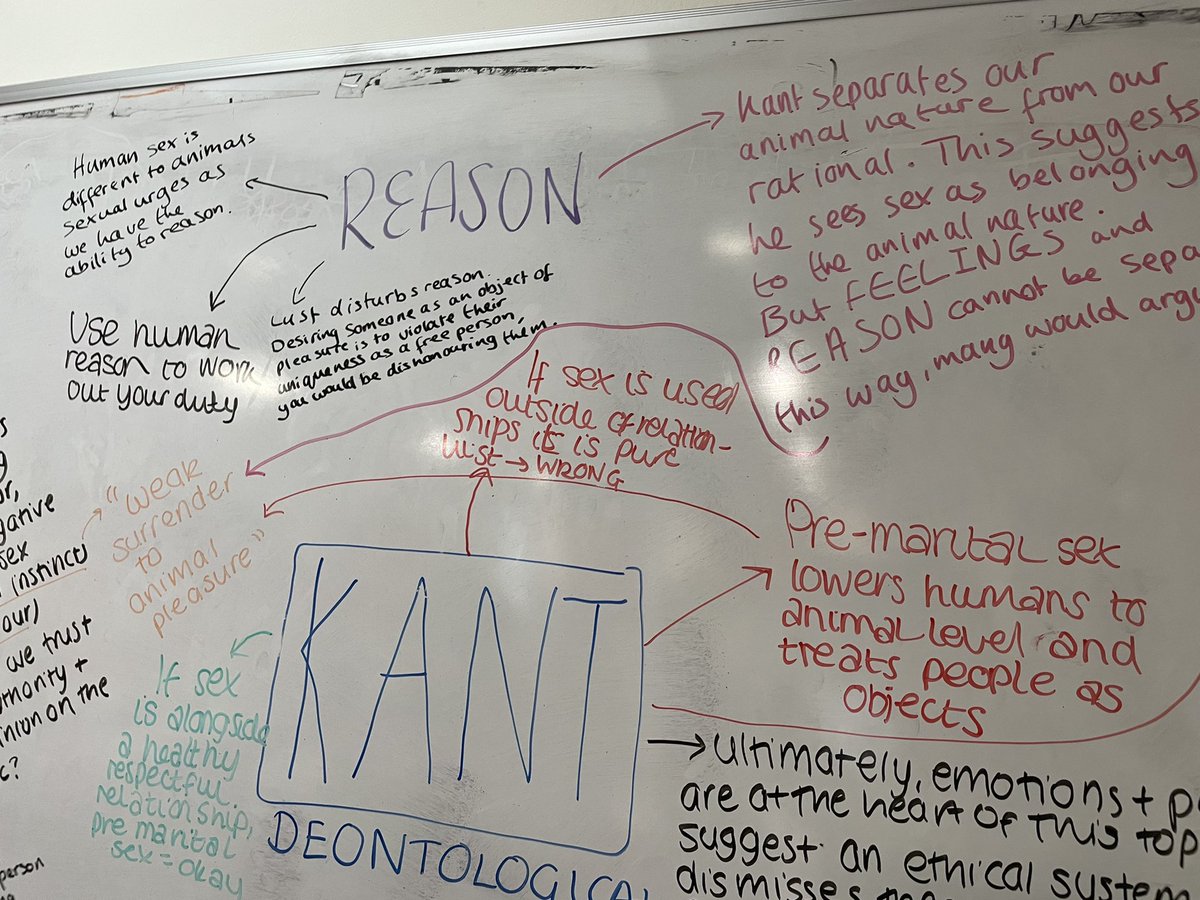 Human sex is
different to animals
sexual urges as
we have the
ability to reason.
REASON
Kant separates our
animal nature from our
rational. This suggests
he sees sex as belonging
to the animal nature.
But FEELINGS and
REASON cannot be sepa
this way, many would argu
Use human
reason to work
out your duty
Lust disturbs reason.
Desiring someone as an object of
pleasure is to violate their
uniqueness as a free person,
you would be dishonouring them.
If sex is used
outside of relation-
ships its is pure
lust → WRONG
"weak
surrender
to
animal
pleasure"
s
g
or,
gative
sex
instinct)
our)
we trust
thority +
inion on the
c?
person
KANT
DEONTOLOGICAL
Pre-marital sex
lowers humans to
animal level and
treats people as
objects
If sex
is alongside
a healthy
respectful
relationship,
pre marital
sex = okay
→ ultimately, emotions + p
are at the heart of this top
suggest an ethical system
dismisses